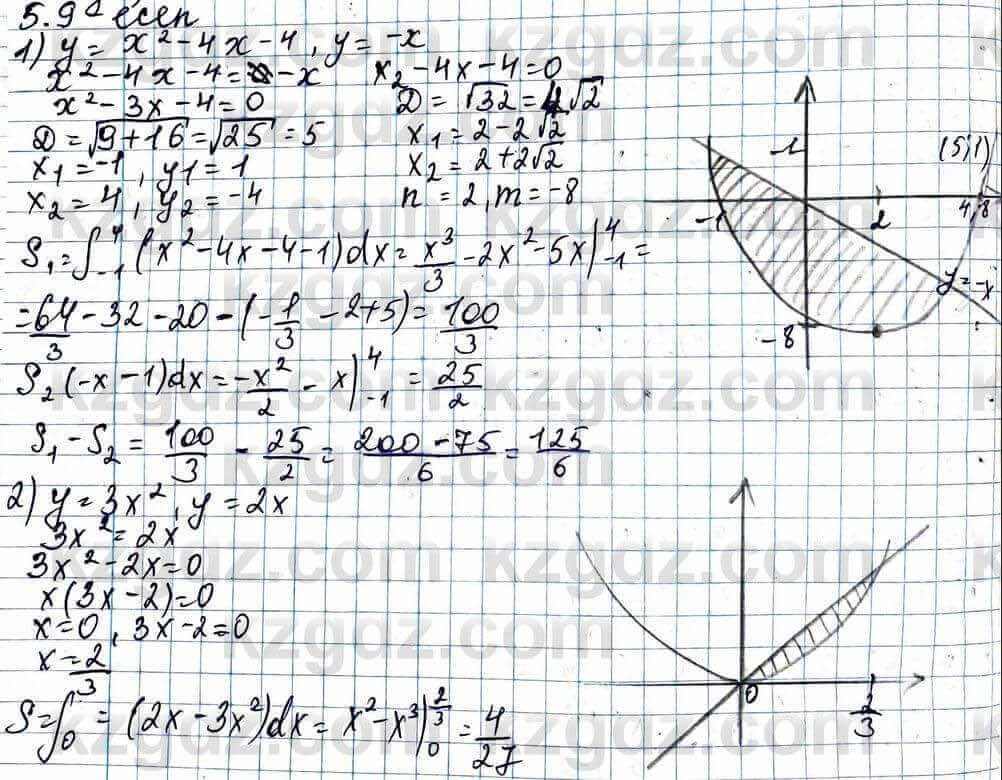 5.9 есеп
1) y = x² - 4x - 4, y = -x
x² - 4x - 4 = -x    x₂ - 4x - 4 = 0
x² - 3x - 4 = 0    D = √32 = 4√2
D = √9+16 = √25 = 5    x₁ = 2 - 2√2
x₁ = -1, y₁ = 1    x₂ = 2 + 2√2
x₂ = 4, y₂ = -4    n = 2, m = -8
S₁ = ∫₋₁⁴ (x² - 4x - 4 - 1)dx = x³/3 - 2x² - 5x)|₋₁⁴ =
= 64/3 - 32 - 20 - (-1/3 - 2 + 5) = 100/3
S₂ (-x - 1)dx = -x²/2 - x)|₋₁⁴ = 25/2
S₁ - S₂ = 100/3 - 25/2 = 200 - 75/6 = 125/6
-1
(5;1)
-1
2
4,8
y = -x
-8
2) y = 3x², y = 2x
3x² = 2x
3x² - 2x = 0
x(3x - 2) = 0
x = 0, 3x - 2 = 0
x = 2/3
S = ∫₀ = (2x - 3x²)dx = x² - x³)|₀^(2/3) = 4/27
0
2/3
kzgdz.com